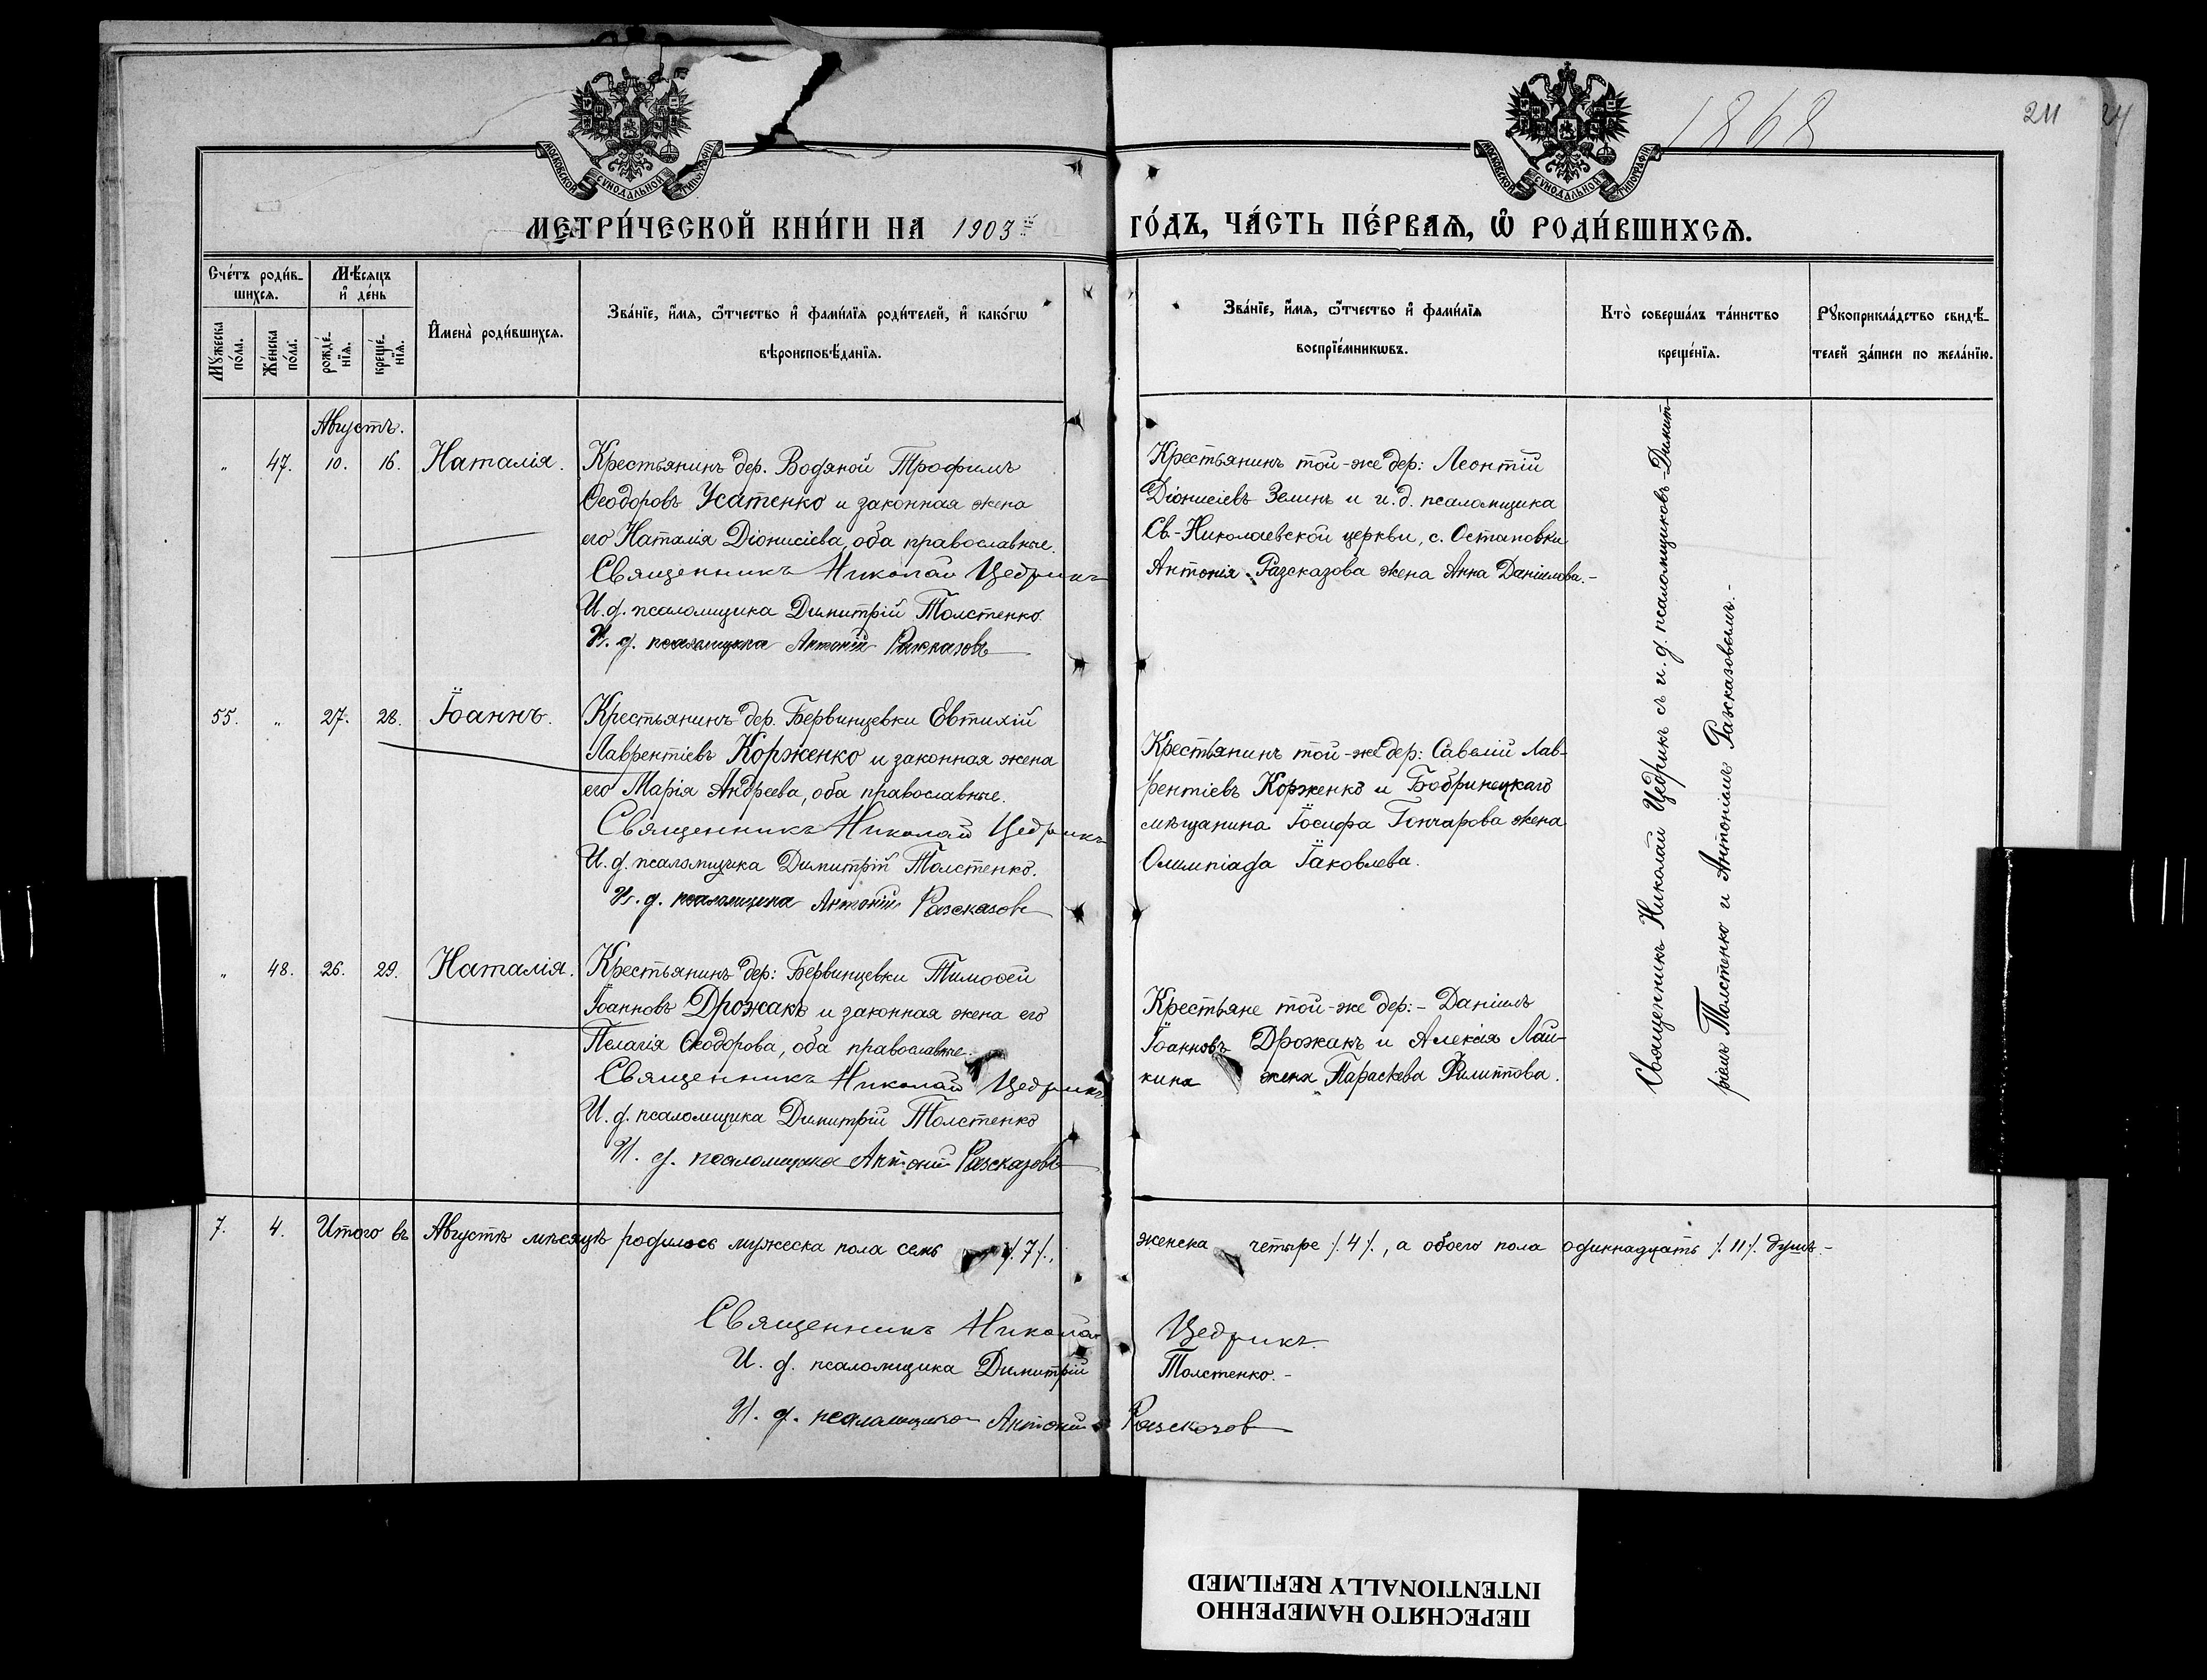 1868
211
24
МОСКОВСКОЙ СУНОДАЛЬНОЙ ТИПОГРАФІИ
МОСКОВСКОЙ СУНОДАЛЬНОЙ ТИПОГРАФІИ
МЕТРИ́ЧЕСКОЙ КНИ́ГИ НА 1903й ГО́ДЪ, ЧА́СТЬ ПЕ́РВАѦ, Ѡ҆ РОДИ́ВШИХСѦ.
Сче́тъ роди́в-
шихсѧ.
Мꙋ́жеска по́ла.
Же́нска по́ла.
Мѣ́сяцъ и҆ де́нь
рожде́-
нїѧ.
креще́-
нїѧ.
И҆мена̀ роди́вшихсѧ.
Зва́нїе, и҆́мѧ, ѻ҆́тчество и҆ фами́лїѧ роди́телей, и҆ како́гѡ
вѣроисповѣ́данїѧ.
Зва́нїе, и҆́мѧ, ѻ҆́тчество и҆ фами́лїѧ
воспрїе́мникѡвъ.
Кто̀ соверша́лъ та́инство
креще́нїѧ.
Рꙋкоприкла́дство свидѣ́-
телей за́писи по жела́нїю.
Августъ.
" 47. 10. 16. Наталія.
Крестьянинъ дер. Водяной Трофимъ
Ѳеодоровъ Усатенко и законная жена
его Наталія Діонисіева, оба православные.
Священникъ Николай Цедрикъ
И. д. псаломщика Димитрій Толстенко
И. д. псаломщика Антоній Разсказовъ
Крестьянинъ той-же дер: Леонтій
Діонисіевъ Зелинъ и и. д. псаломщика
Св.-Николаевской церкви, с. Остановки
Антонія Разсказова жена Анна Даніилова.-
55. " 27. 28. Іоаннъ.
Крестьянинъ дер. Бервинцевки Евтихій
Лаврентіевъ Корженко и законная жена
его Марія Андреева, оба православные.
Священникъ Николай Цедрикъ
И. д. псаломщика Димитрій Толстенко.
И. д. псаломщика Антоній Разсказовъ
Крестьянинъ той-же дер: Савелій Лав-
рентіевъ Корженко и Бобринецкаго
мѣщанина Іосифа Гончарова жена
Олимпіада Іаковлева.
" 48. 26. 29. Наталія.
Крестьянинъ дер: Бервинцевки Тимоѳей
Іоанновъ Дрожакъ и законная жена его
Пелагія Ѳеодорова, оба православные.
Священникъ Николай Цедрикъ
И. д. псаломщика Димитрій Толстенко
И. д. псаломщика Антоній Разсказовъ
Крестьяне той-же дер:- Даніилъ
Іоанновъ Дрожакъ и Алексія Лай-
кина жена Параскева Филиппова.
Священникъ Николай Цедрикъ съ и. д. псаломщиковъ-Димит-
ріемъ Толстенко и Антоніемъ Разсказовымъ.-
7. 4. Итого въ Августѣ мѣсяцѣ родилось мужеска пола семь /.7/., женска четыре /.4/., а обоего пола одиннадцать /.11/. душъ.-
Священникъ Николай Цедрикъ.
И. д. псаломщика Димитрій Толстенко.-
И. д. псаломщика Антоній Разсказовъ
ПЕРЕСНЯТО НАМЕРЕННО
INTENTIONALLY REFILMED